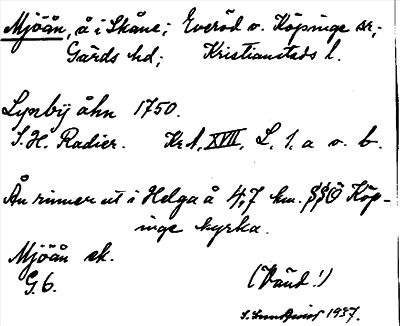 Mjöån, å i Skåne; Everöd o. Köpinge sr,;
Gärds hd; Kristianstads l.
Lyngby åhn 1750.
S. H. Radier. Kr. 1, XVII, L, 1. a o. b.
Ån rinner ut i Helga å 4,7 km. SSÖ Köp-
inge kyrka.
Mjöån ek.
G. 6.
(Vänd!)
1937.